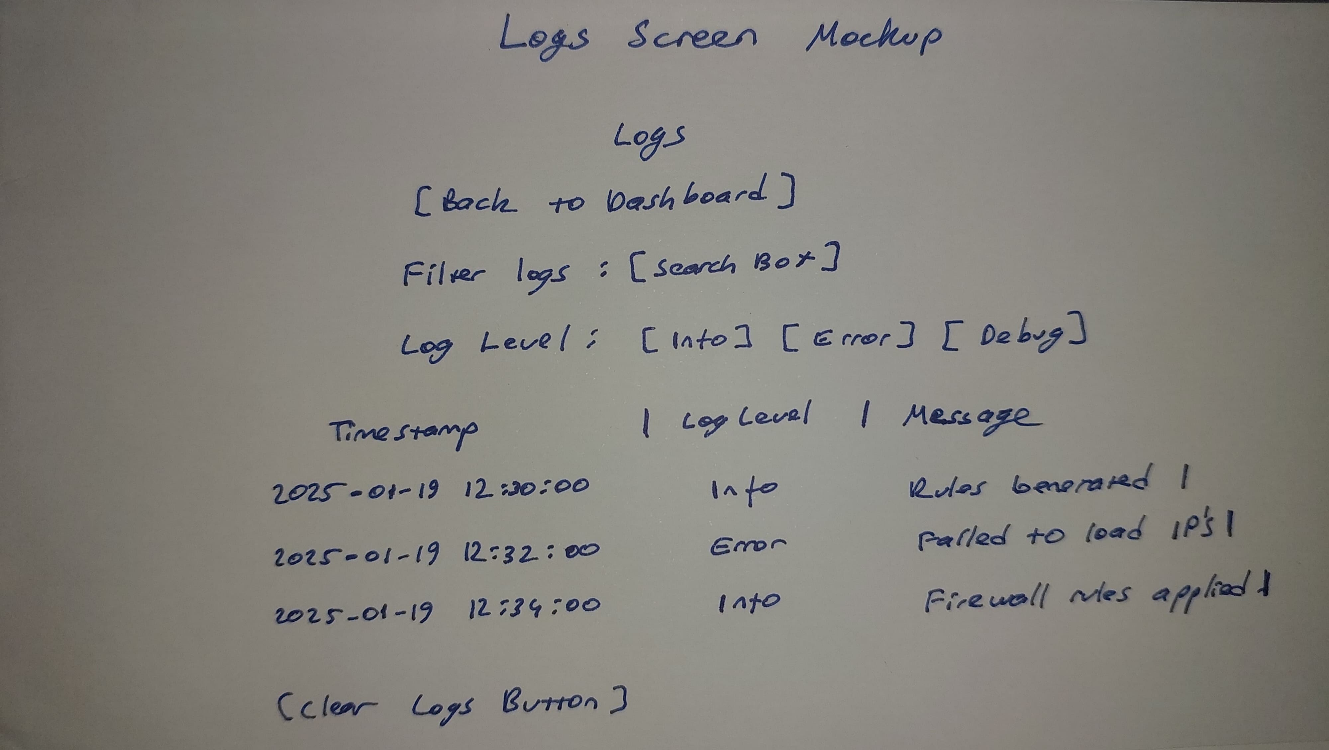 Logs Screen Mockup
Logs
[Back to Dashboard]
Filter logs : [Search Box]
Log Level : [Info] [Error] [Debug]
Timestamp | Log Level | Message
2025-01-19 12:30:00 Info Rules Generated |
2025-01-19 12:32:00 Error Failed to load IP's |
2025-01-19 12:34:00 Info Firewall rules applied |
[Clear Logs Button]